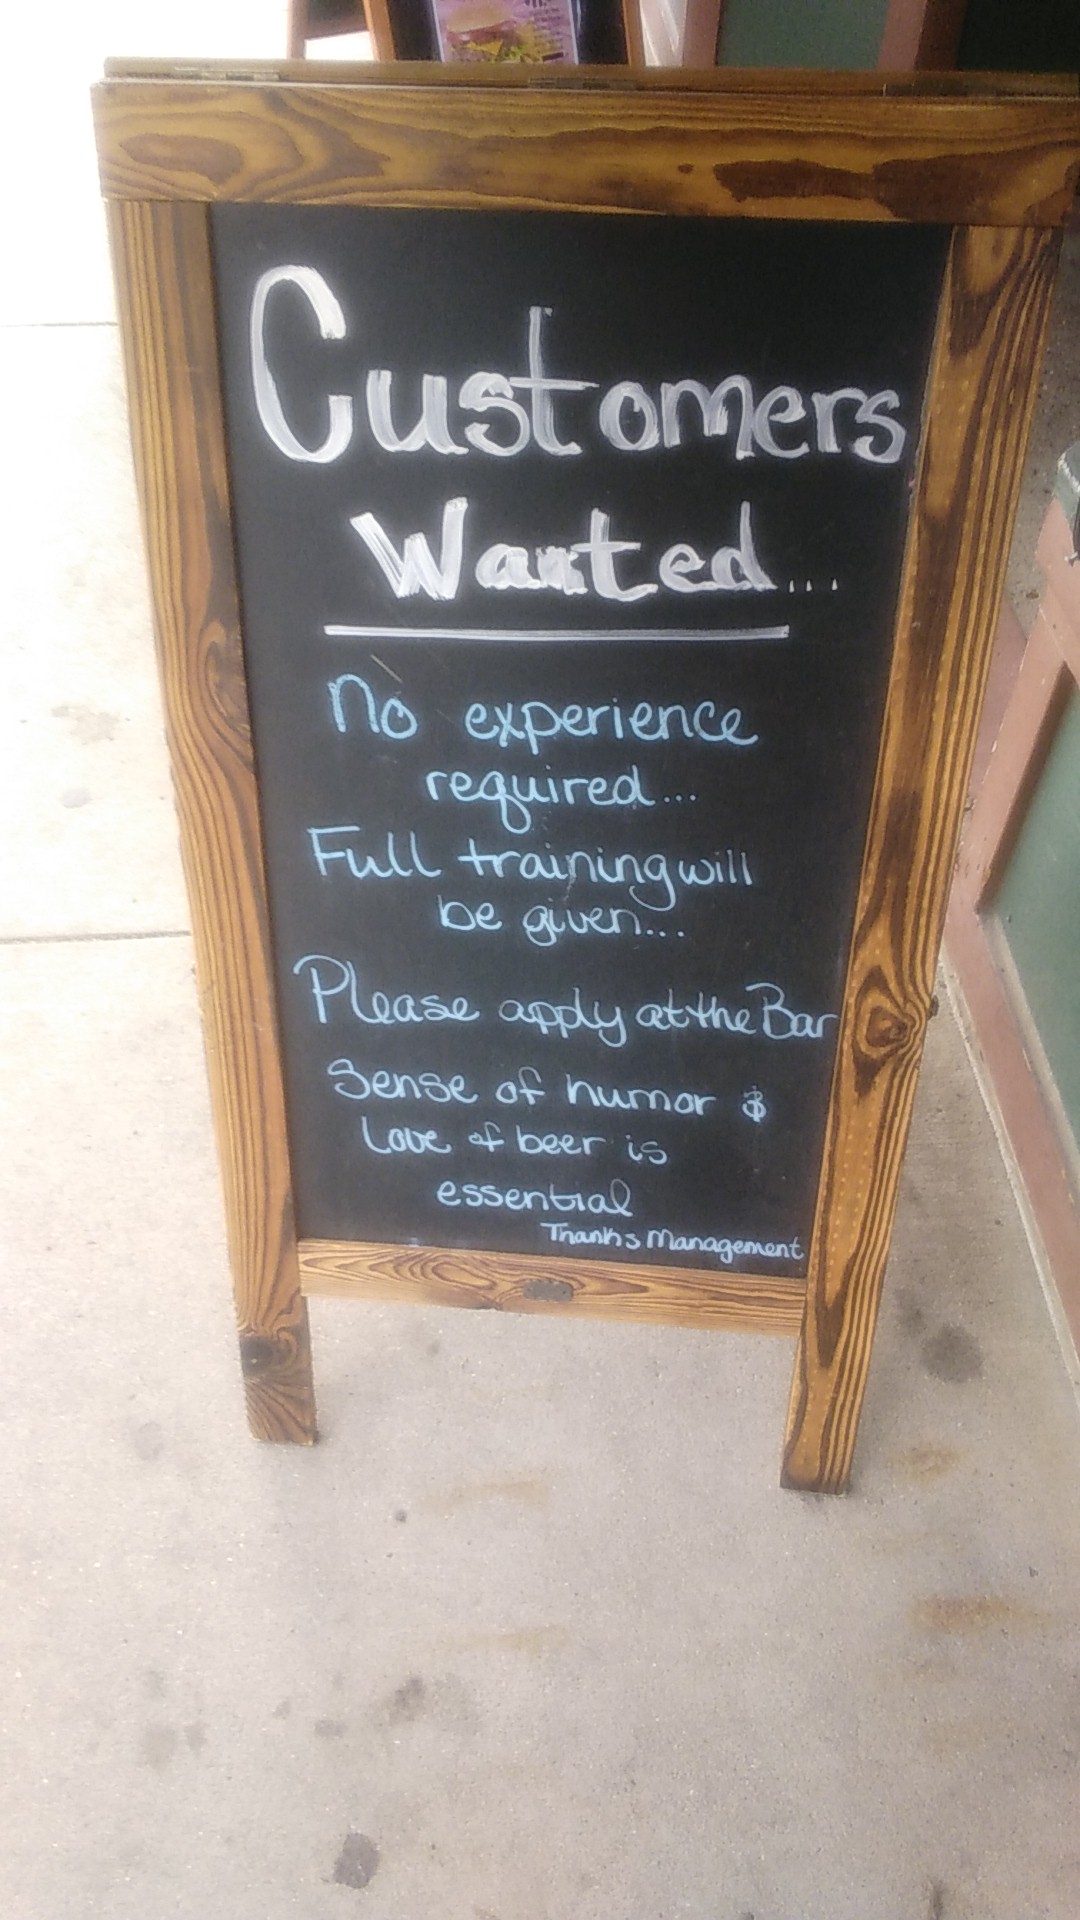 Customers
Wanted...
No experience
required...
Full training will
be given...
Please apply at the Bar
Sense of humor &
Love of beer is
essential
Thanks Management